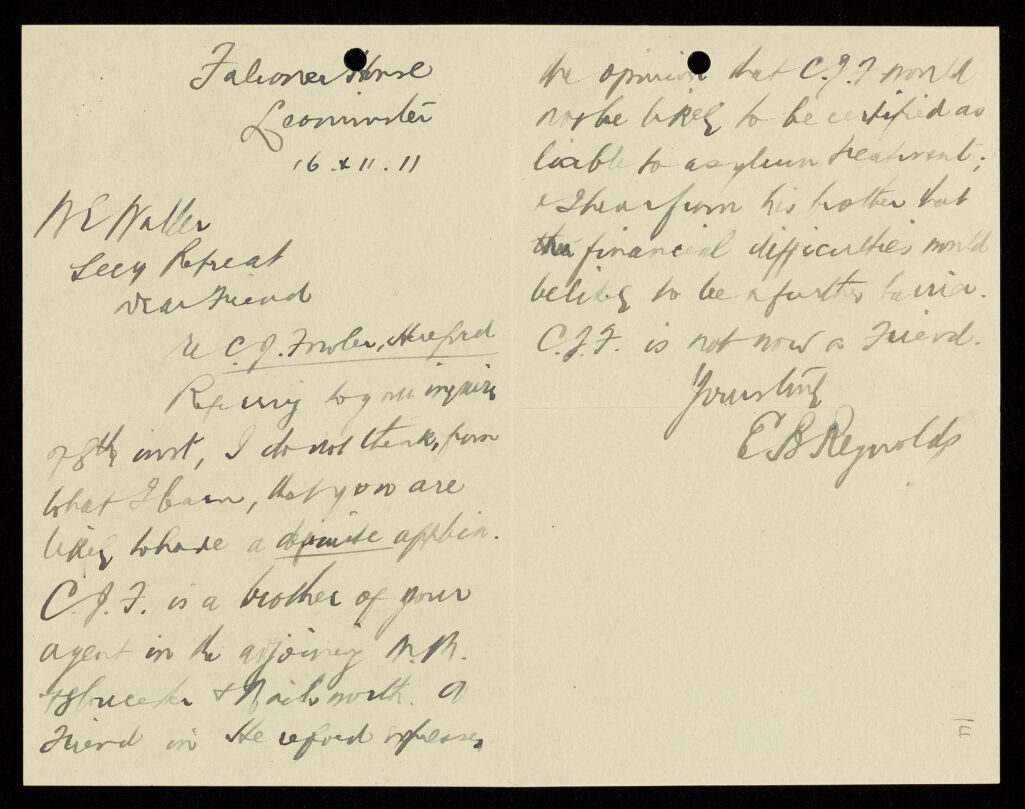 Falconer House
Leominster
16.XII.11
W E Waller
Secy Retreat
Dear Friend
re C.J. Fowler, Hereford
Referring to your inquiry
of 8th inst, I do not think, from
what I learn, that you are
likely to have a definite applicn.
C.J.F. is a brother of your
agent in the adjoining M.M.
of Gloucester & Nailsworth. A
Friend in Hereford expresses
the opinion that C.J.F would
not be likely to be certified as
liable to asylum treatment;
& I hear from his brother that
the financial difficulties would
be likely to be a further barrier.
C.J.F. is not now a Friend.
Yours truly
E B Reynolds